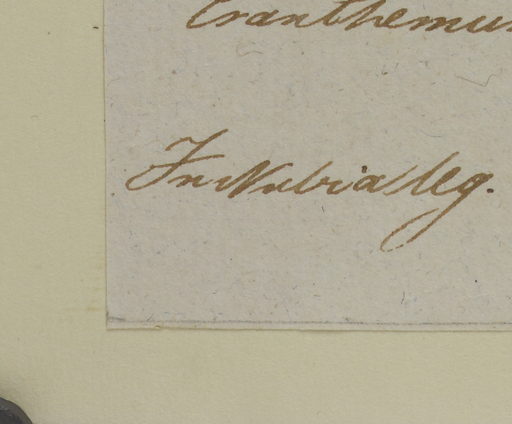 Eranthemum
In Nubia leg.